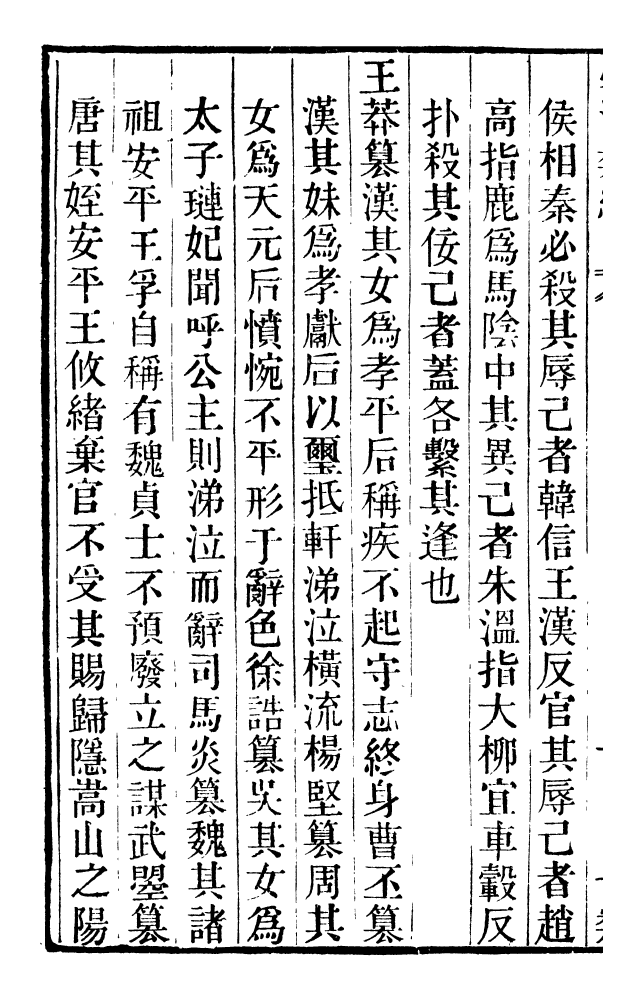 侯相秦必殺其辱己者韓信王漢反官其辱己者趙
高指鹿爲馬陰中其異己者朱溫指大柳宜車轂反
扑殺其佞己者蓋各繫其逢也
王莽篡漢其女爲孝平后稱疾不起守志終身曹丕篡
漢其妹爲孝獻后以璽抵軒涕泣橫流楊堅篡周其
女爲天元后憤惋不平形于辭色徐誥篡吳其女爲
太子璉妃聞呼公主則涕泣而辭司馬炎篡魏其諸
祖安平王孚自稱有魏貞士不預廢立之謀武曌篡
唐其姪安平王攸緒棄官不受其賜歸隱嵩山之陽